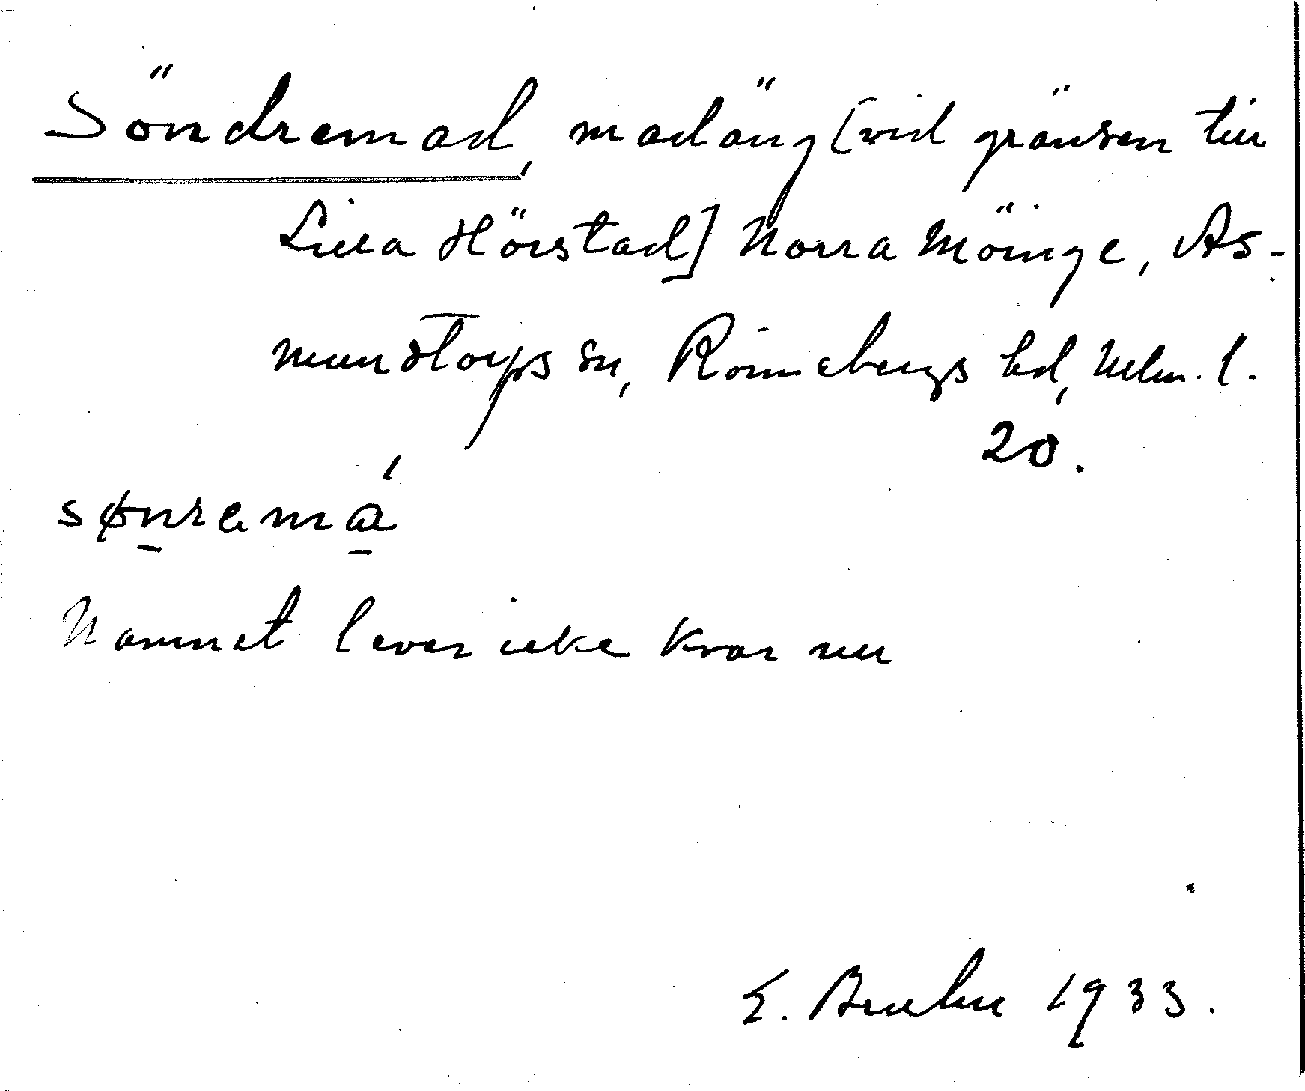 Söndremad, madäng [vid gränsen till
Lilla Hörstad] Norra Möinge, As-
mundtorps sn, Rönnebergs hd, Mlm. l.
20.
sønremá
Namnet lever icke kvar nu
E. Bruhn 1933.